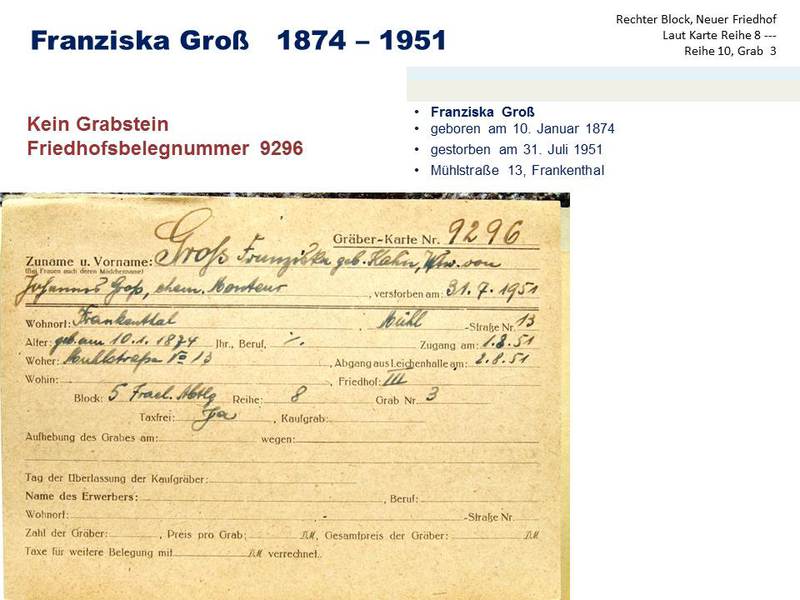 Franziska Groß 1874 – 1951
Rechter Block, Neuer Friedhof
Laut Karte Reihe 8 ---
Reihe 10, Grab 3
Kein Grabstein
Friedhofsbelegnummer 9296
• Franziska Groß
• geboren am 10. Januar 1874
• gestorben am 31. Juli 1951
• Mühlstraße 13, Frankenthal
Gräber-Karte Nr. 9296
Zuname u. Vorname: Groß Franziska geb. Hahn, Wtw. von
(Bei Frauen auch deren Mädchenname)
Johannes Groß, ehem. Monteur, verstorben am: 31.7.1951
Wohnort: Frankenthal, Mühl-Straße Nr. 13
Alter: geb. am 10.1.1874 Jhr., Beruf, ./. Zugang am: 1.8.51
Woher: Muhlstraße No 13, Abgang aus Leichenhalle am: 2.8.51
Wohin:, Friedhof: III
Block: 5 Isrl. Abtlg Reihe: 8 Grab Nr. 3
Taxfrei: Ja, Kaufgrab:
Aufhebung des Grabes am: wegen:
Tag der Überlassung der Kaufgräber:
Name des Erwerbers:, Beruf:
Wohnort:, -Straße Nr.
Zahl der Gräber:, Preis pro Grab: DM, Gesamtpreis der Gräber: DM
Taxe für weitere Belegung mit DM verrechnet.